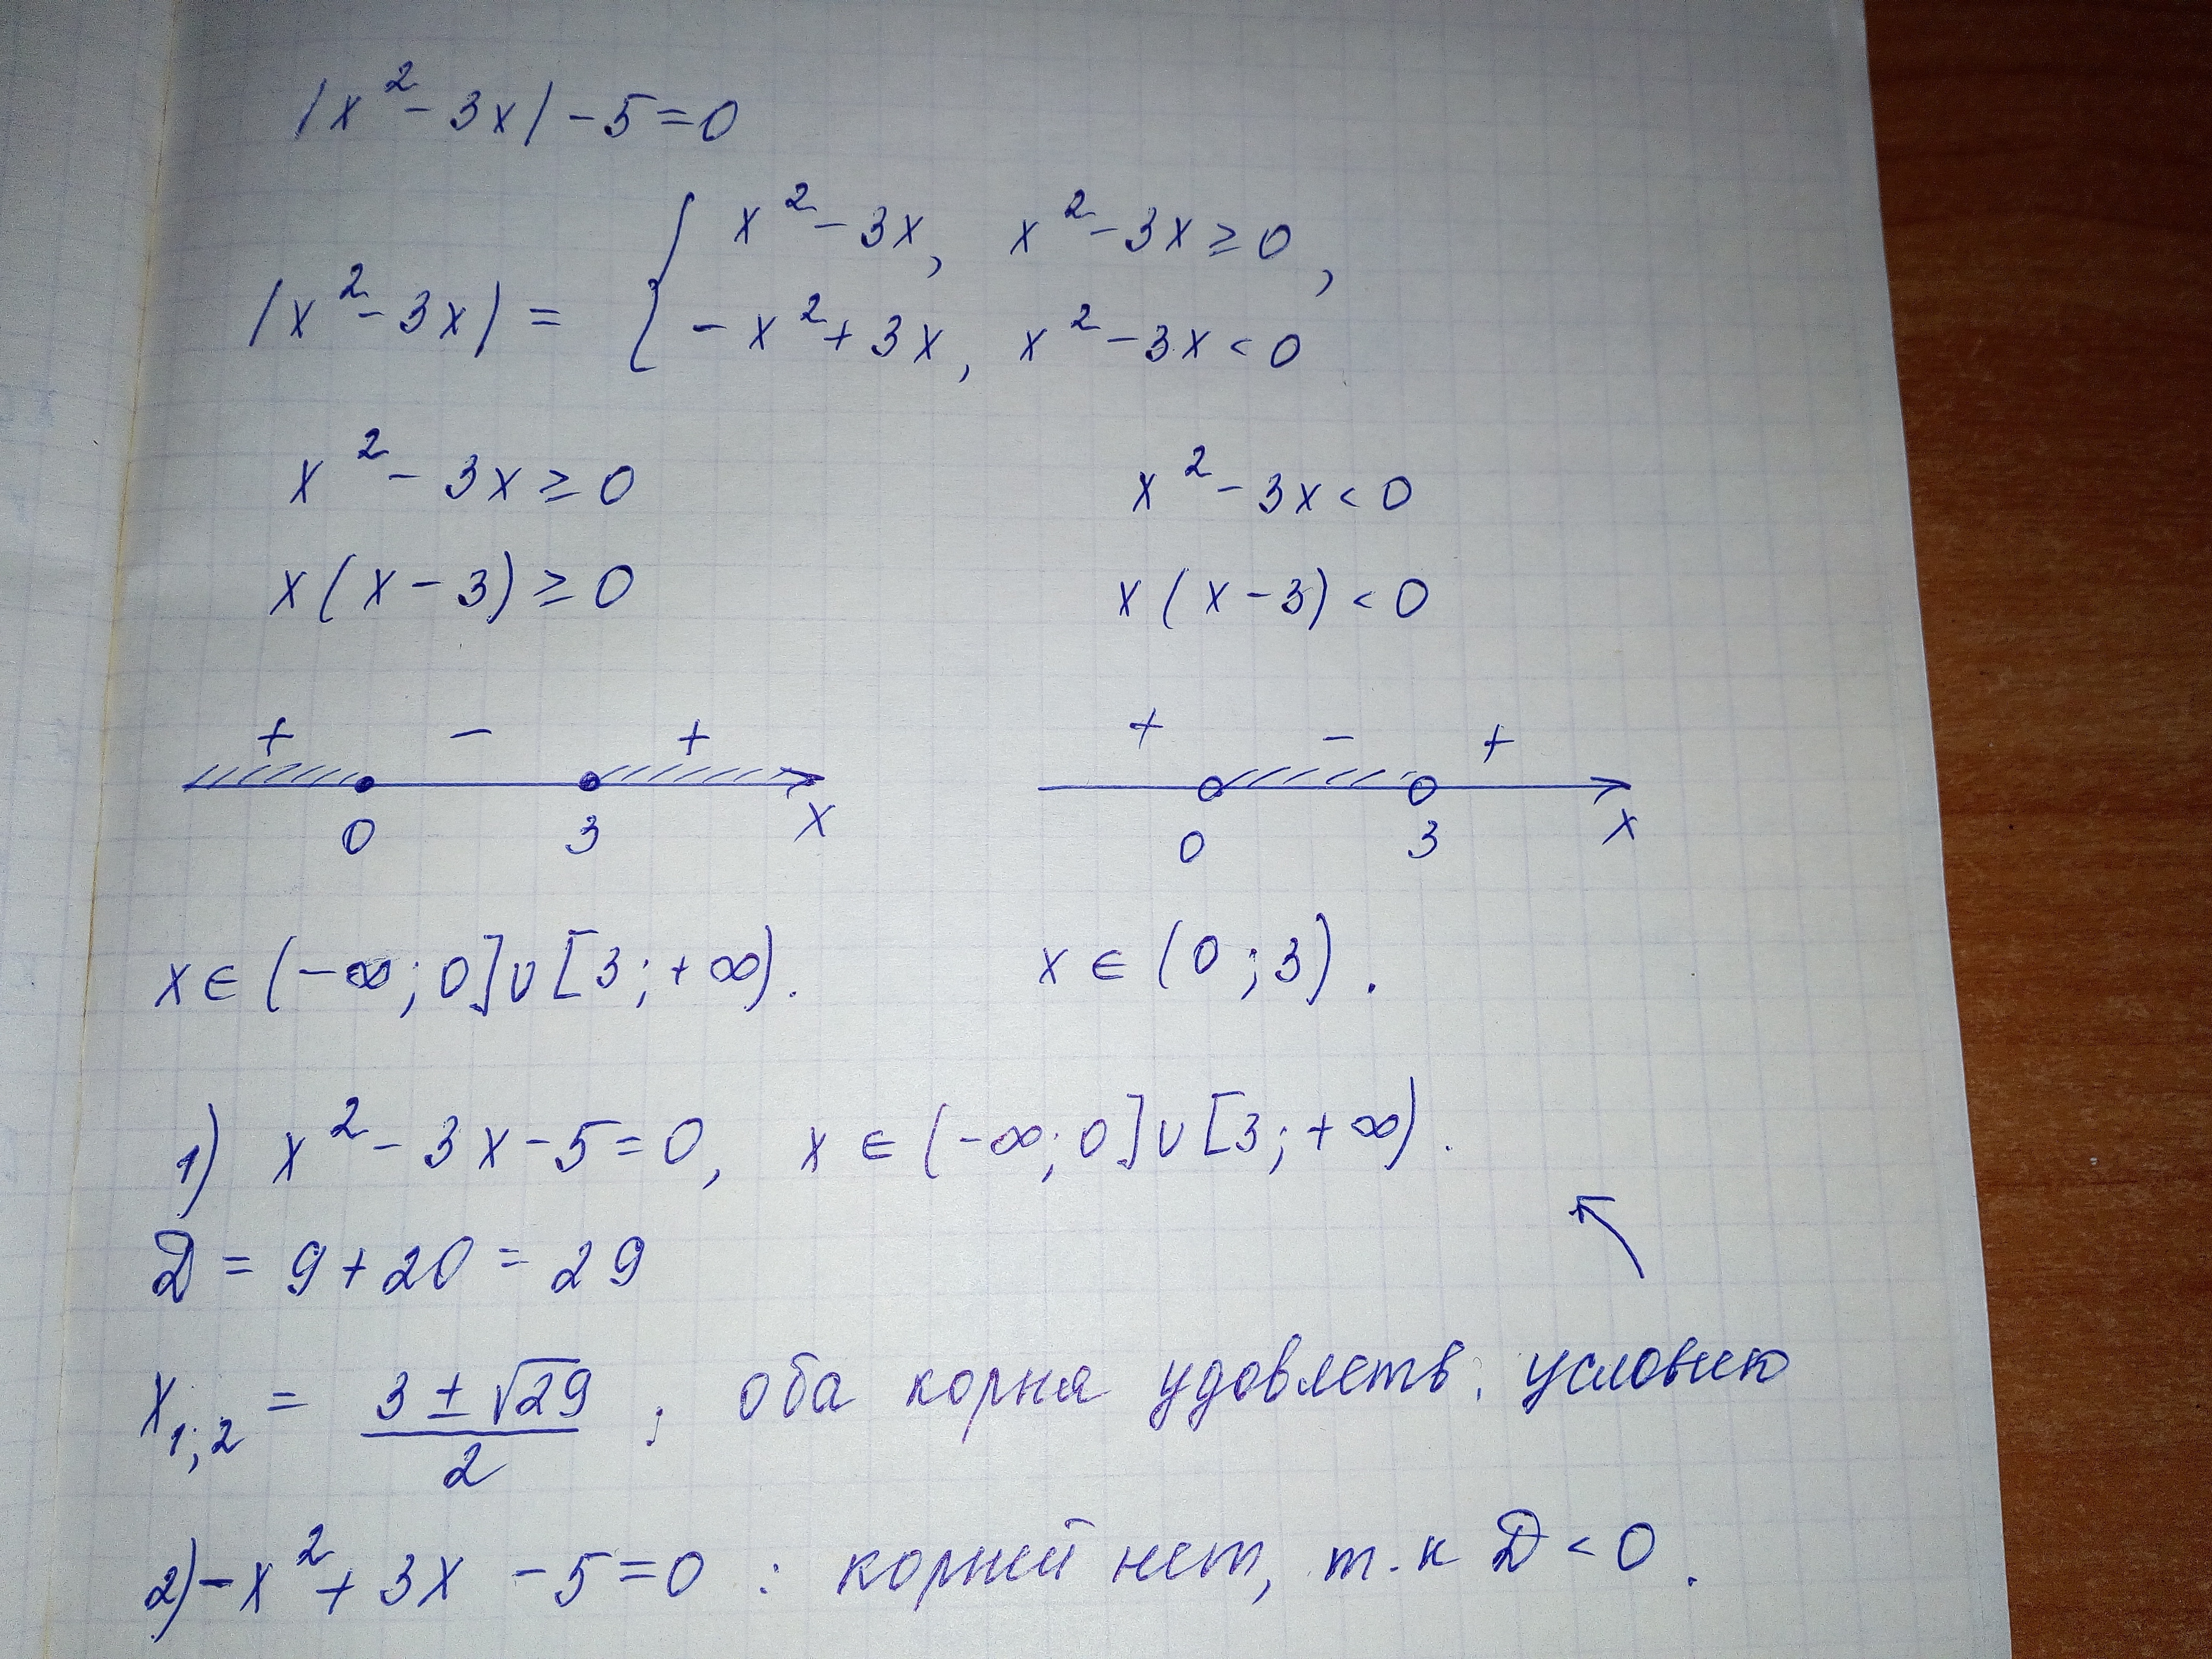 |x² - 3x| - 5 = 0
|x² - 3x| = { x² - 3x, x² - 3x ≥ 0,
- x² + 3x, x² - 3x < 0
x² - 3x ≥ 0 x² - 3x < 0
x(x - 3) ≥ 0 x(x - 3) < 0
+ - + + - +
0 3 x 0 3 x
x ∈ (-∞; 0] ∪ [3; +∞). x ∈ (0; 3).
1) x² - 3x - 5 = 0, x ∈ (-∞; 0] ∪ [3; +∞).
D = 9 + 20 = 29
x₁;₂ = (3 ± √29)/2 ; оба корня удовлетв. условию
2) -x² + 3x - 5 = 0 : корней нет, т.к D < 0.